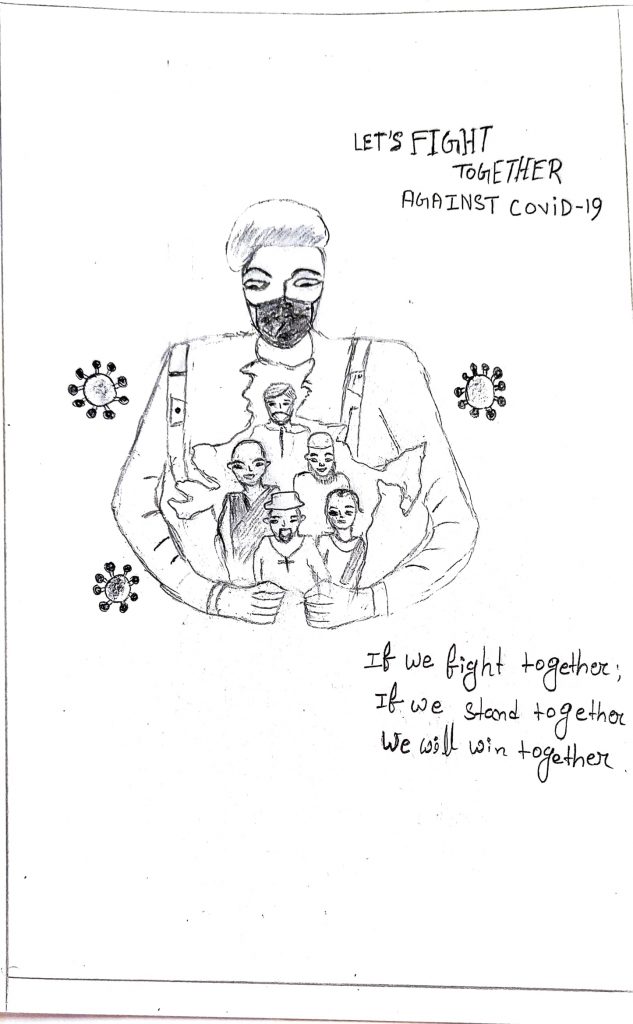 LET'S FIGHT
TOGETHER
AGAINST COViD-19
If we fight together;
If we stand together
We will win together.